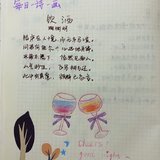 每日一诗·画
饮酒
陶渊明
结庐在人境,而无车马喧。
问君何能尔?心远地自偏。
采菊东篱下,悠然见南山。
山气日夕佳,飞鸟相与还。
此中有真意,欲辨已忘言。
Cheers